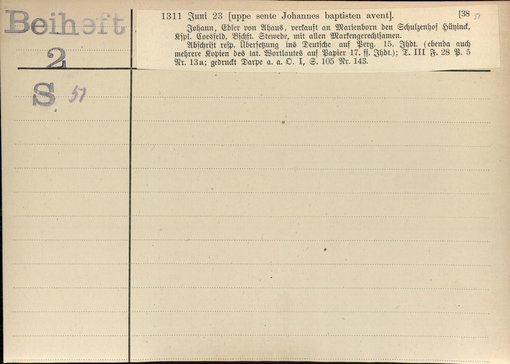 Beiheft
2
S 51
1311 Juni 23 [uppe sente Johannes baptisten avent]. [38 51
Johann, Edler von Ahaus, verkauft an Marienborn den Schulzenhof Hülsinck,
Kspl. Coesfeld, Bschft. Stewede, mit allen Markengerechtsamen.
Abschrift resp. Übersetzung ins Deutsche auf Perg. 15. Jhdt. (ebenda auch
mehrere Kopien des lat. Wortlautes auf Papier 17. ff. Jhdt.); T. III F. 28 P. 5
Nr. 13a; gedruckt Darpe a. a. O. I, S. 105 Nr. 143.